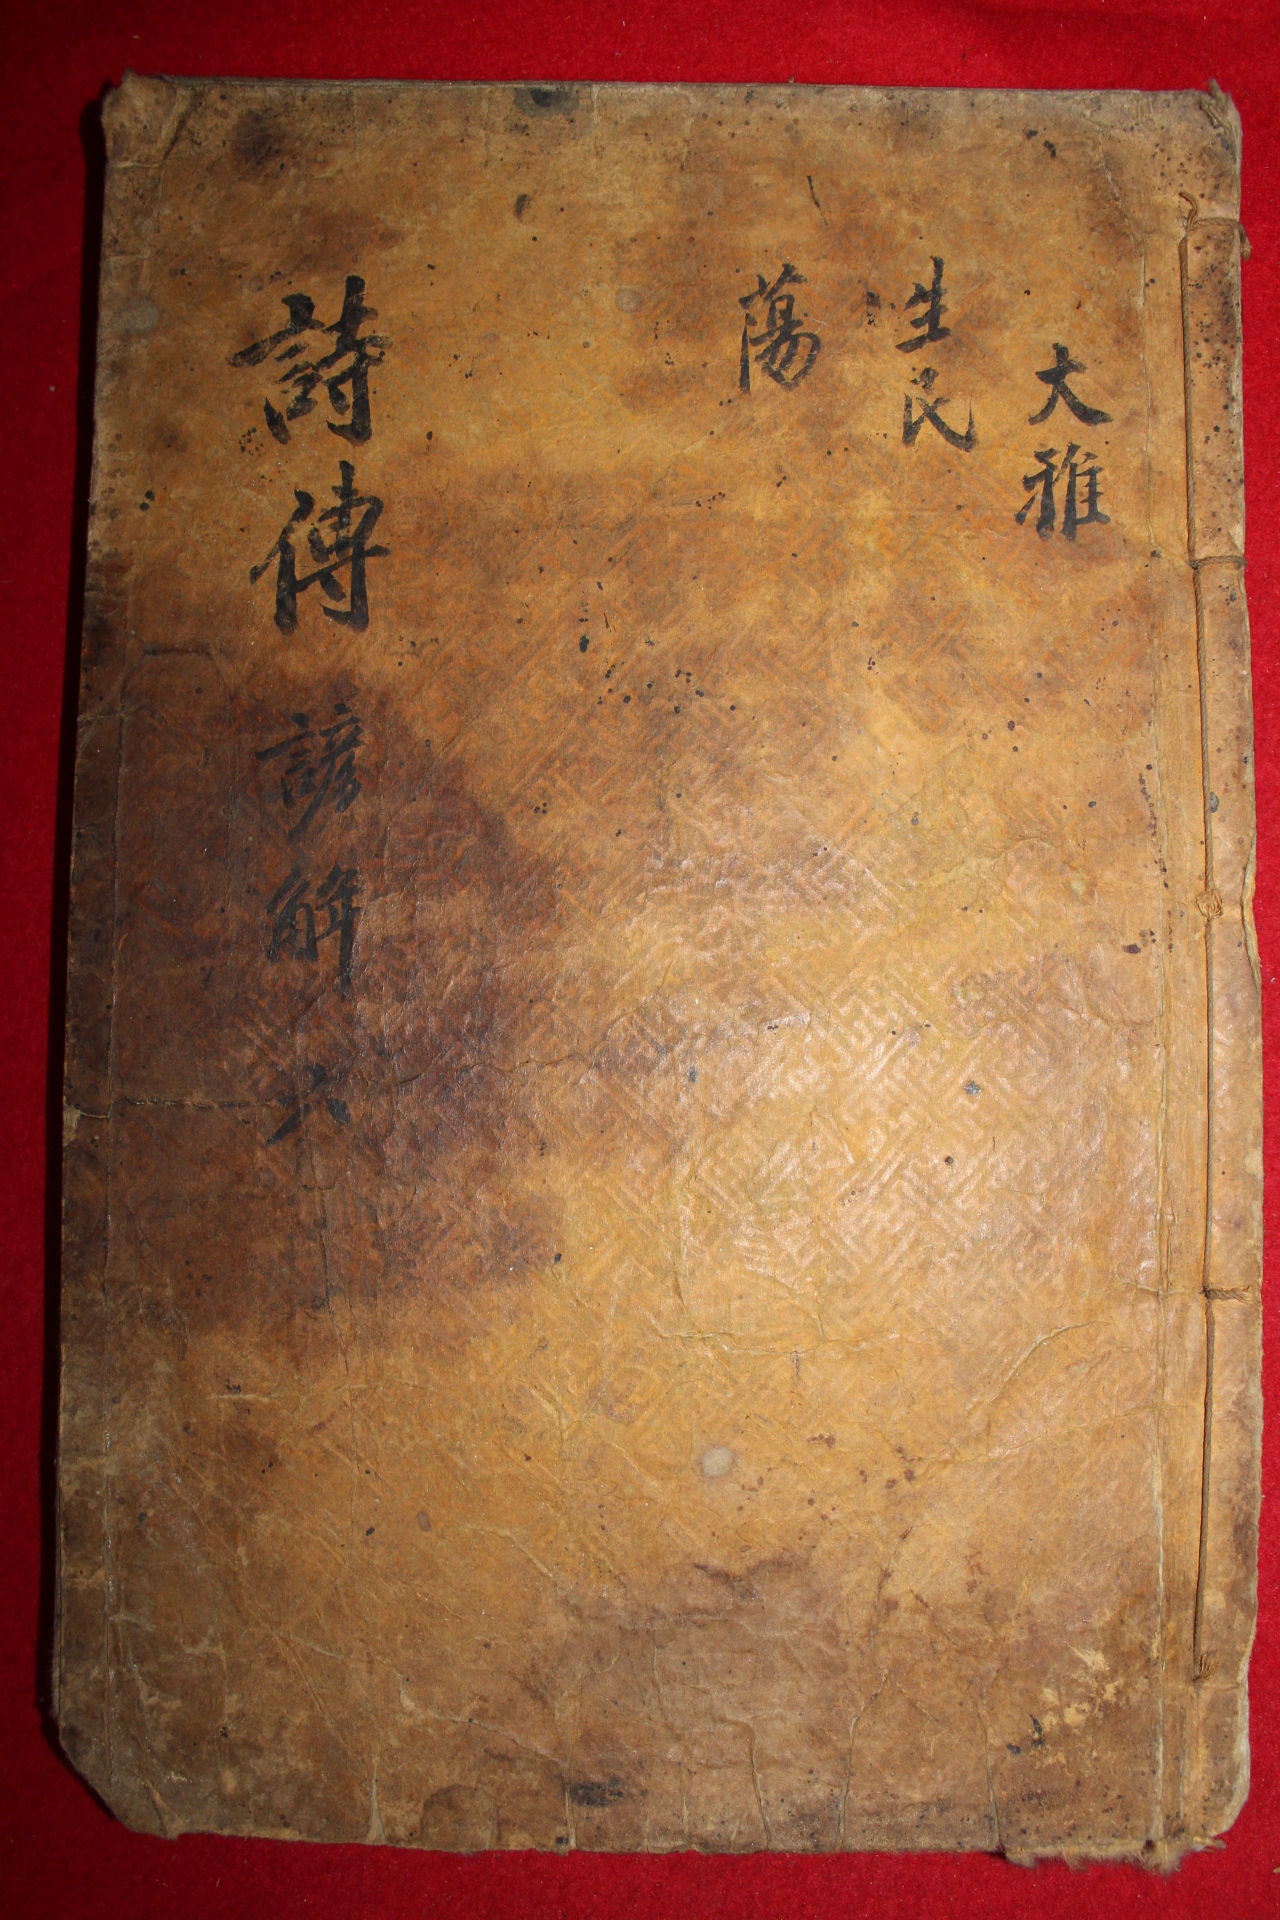 大雅
生民
蕩
詩傳 諺解 六